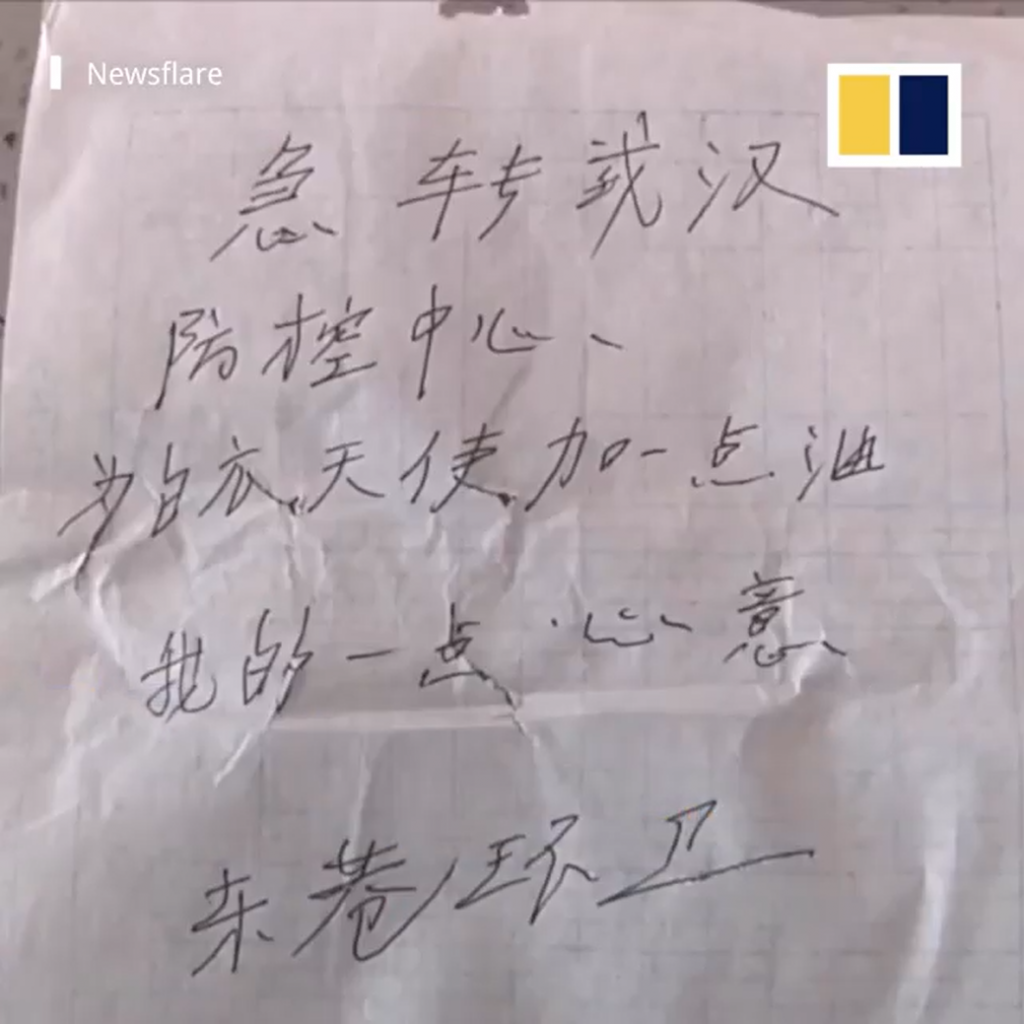 Newsflare
急转武汉
防控中心、
为白衣天使加一点油
我的一点心意
东巷环卫